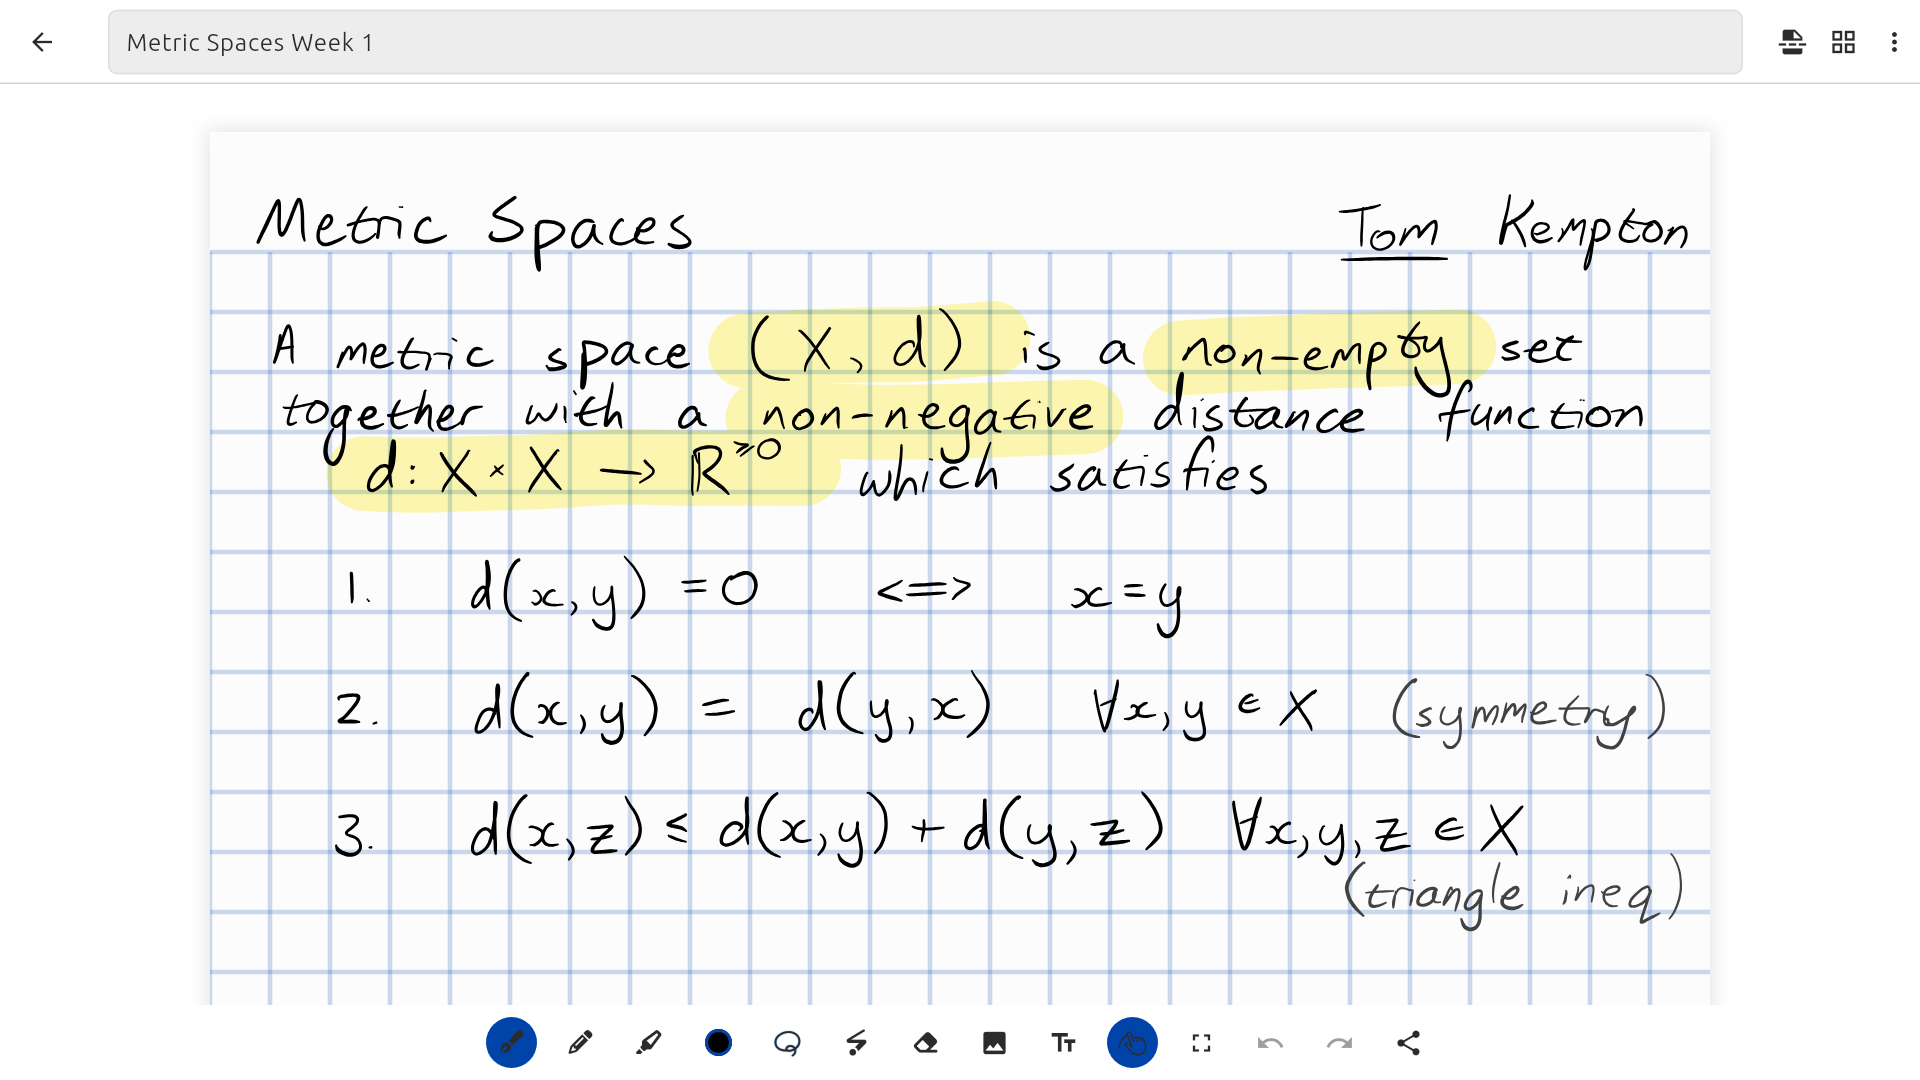 Metric Spaces Week 1
Metric Spaces Tom Kempton
A metric space (X, d) is a non-empty set
together with a non-negative distance function
d: X × X → ℝ^≥0 which satisfies
1. d(x,y) = 0 <=> x = y
2. d(x,y) = d(y,x) ∀x,y ∈ X (symmetry)
3. d(x,z) ≤ d(x,y) + d(y,z) ∀x,y,z ∈ X
(triangle ineq)